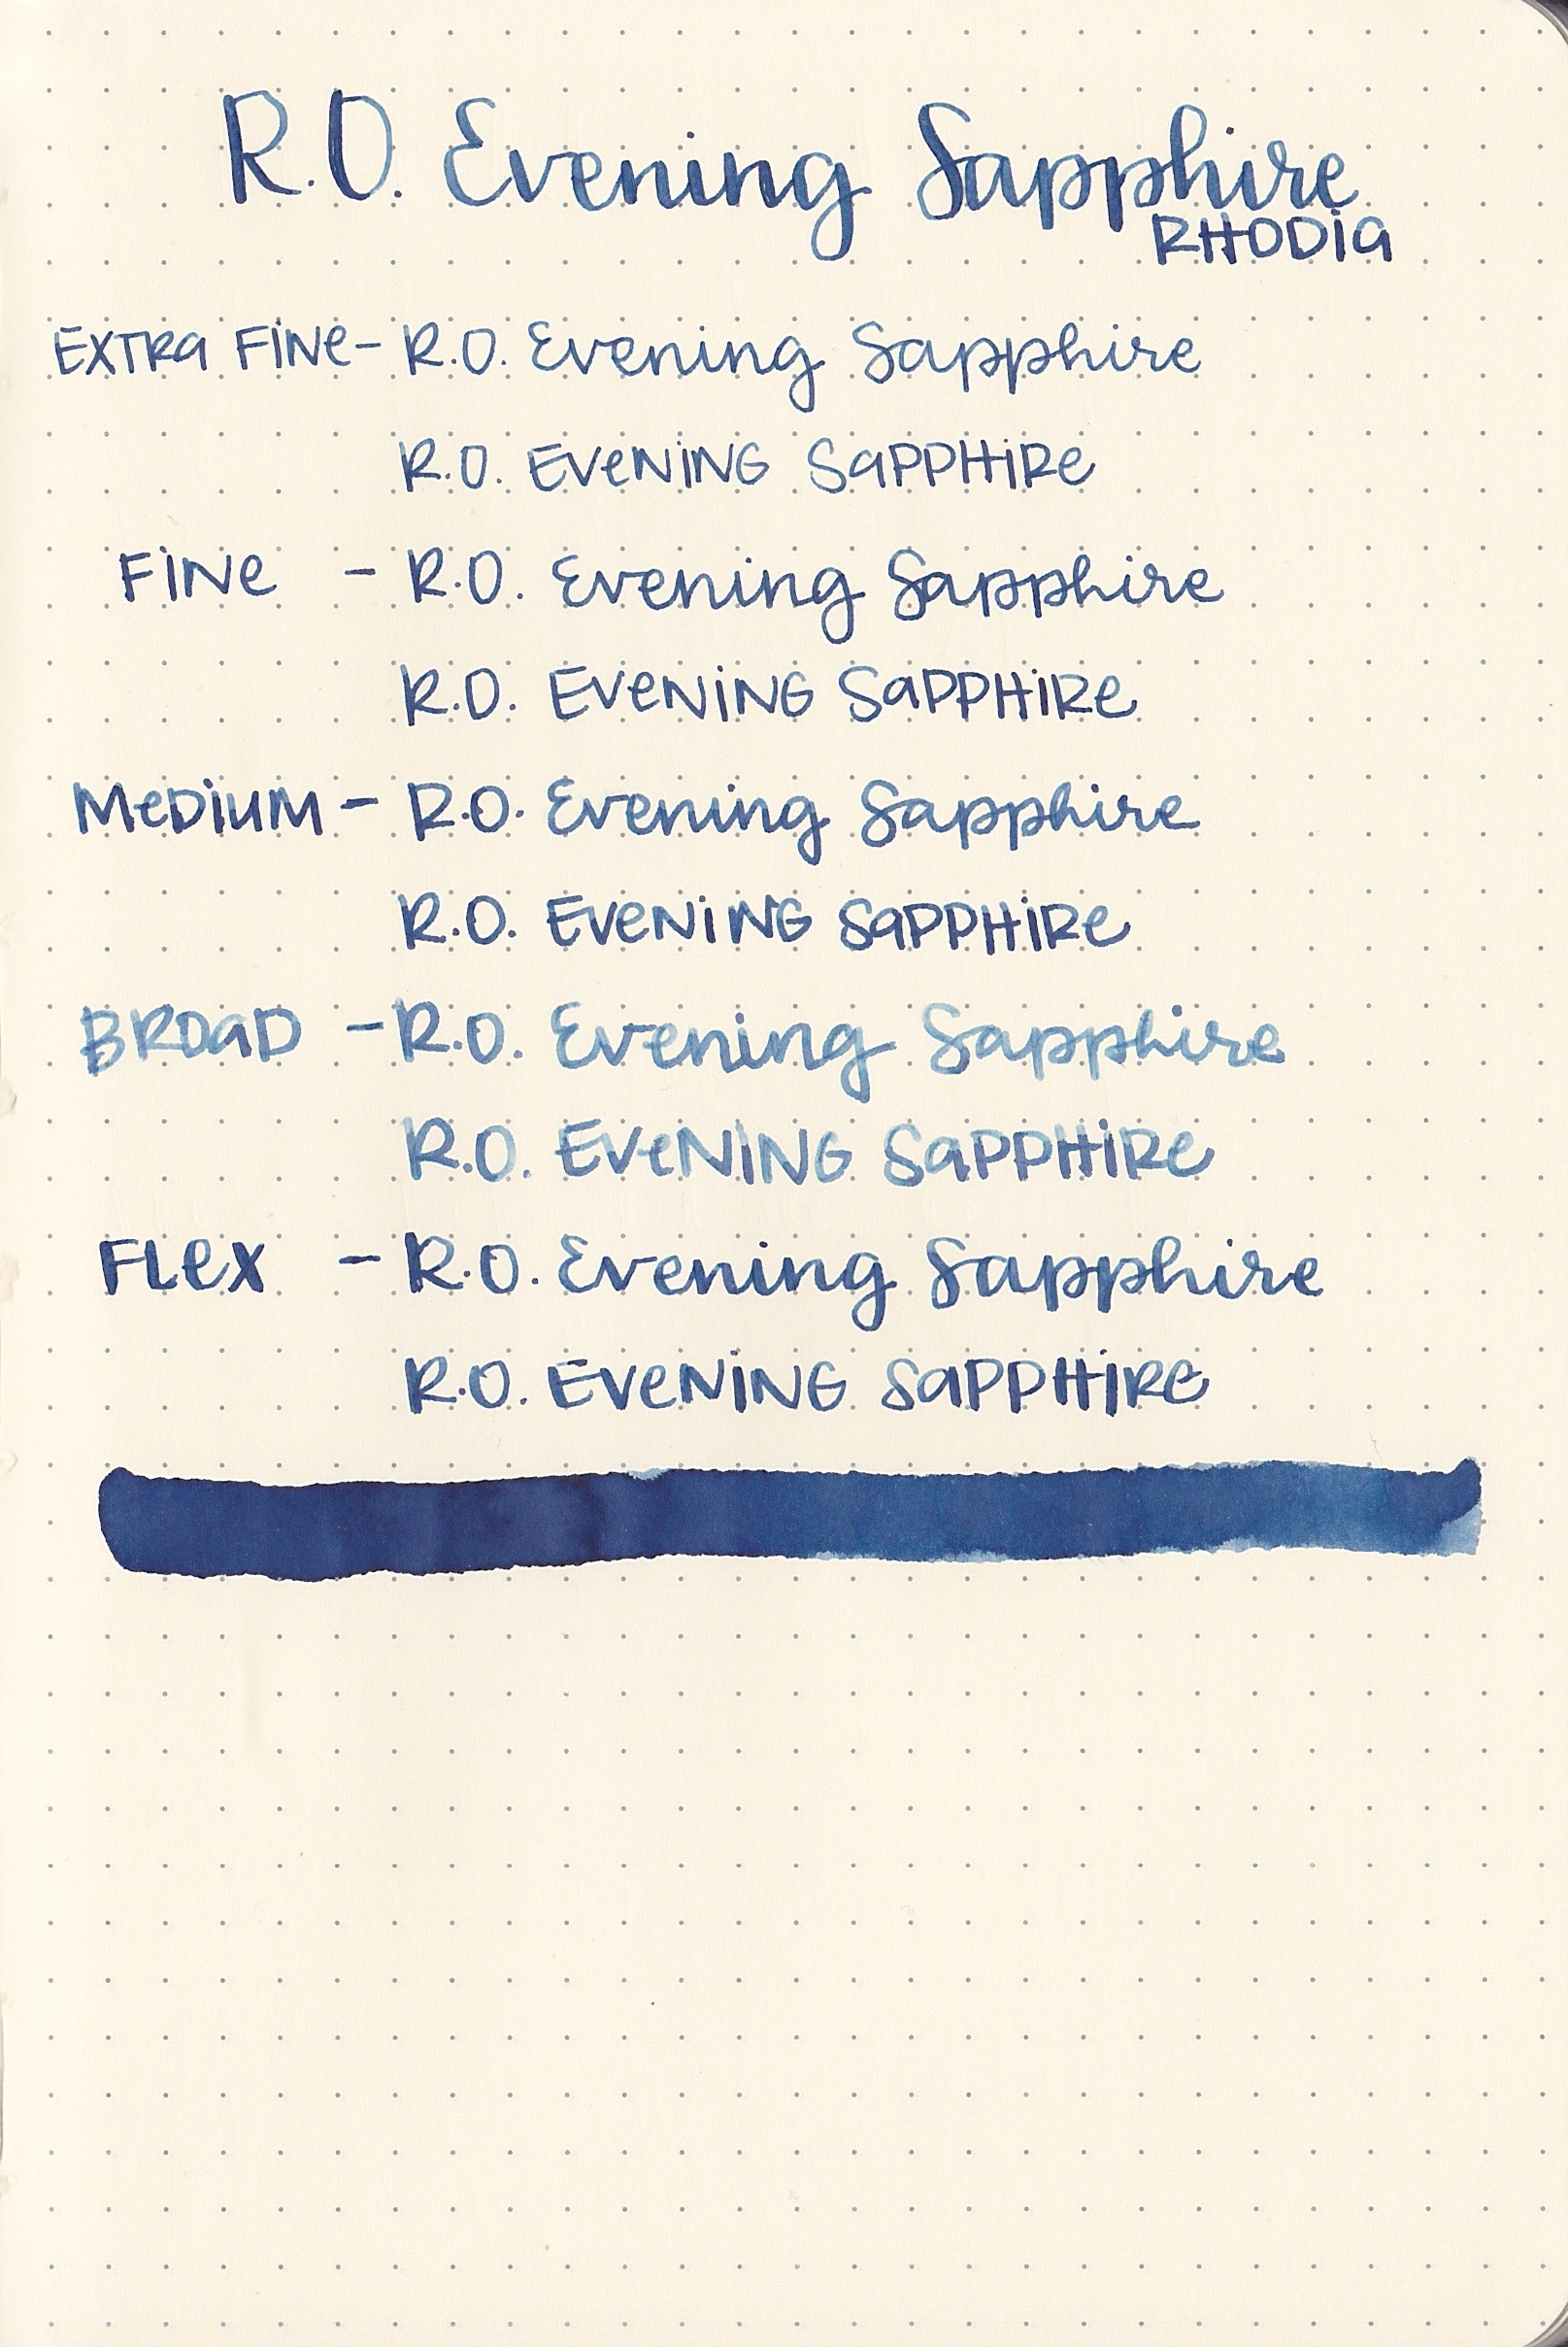 R.O. Evening Sapphire
RHODIa
EXTRa FINe- R.O. Evening Sapphire
R.O. EVeNING SaPPHiRe
FiNe - R.O. Evening Sapphire
R.O. EVeNiNG SaPPHiRe
MeDiUM - R.O. Evening Sapphire
R.O. EVeNiNG SaPPHiRe
BROaD - R.O. Evening Sapphire
R.O. EVeNING SaPPHiRe
FLeX - R.O. Evening Sapphire
R.O. EVeNiNG SaPPHiRe